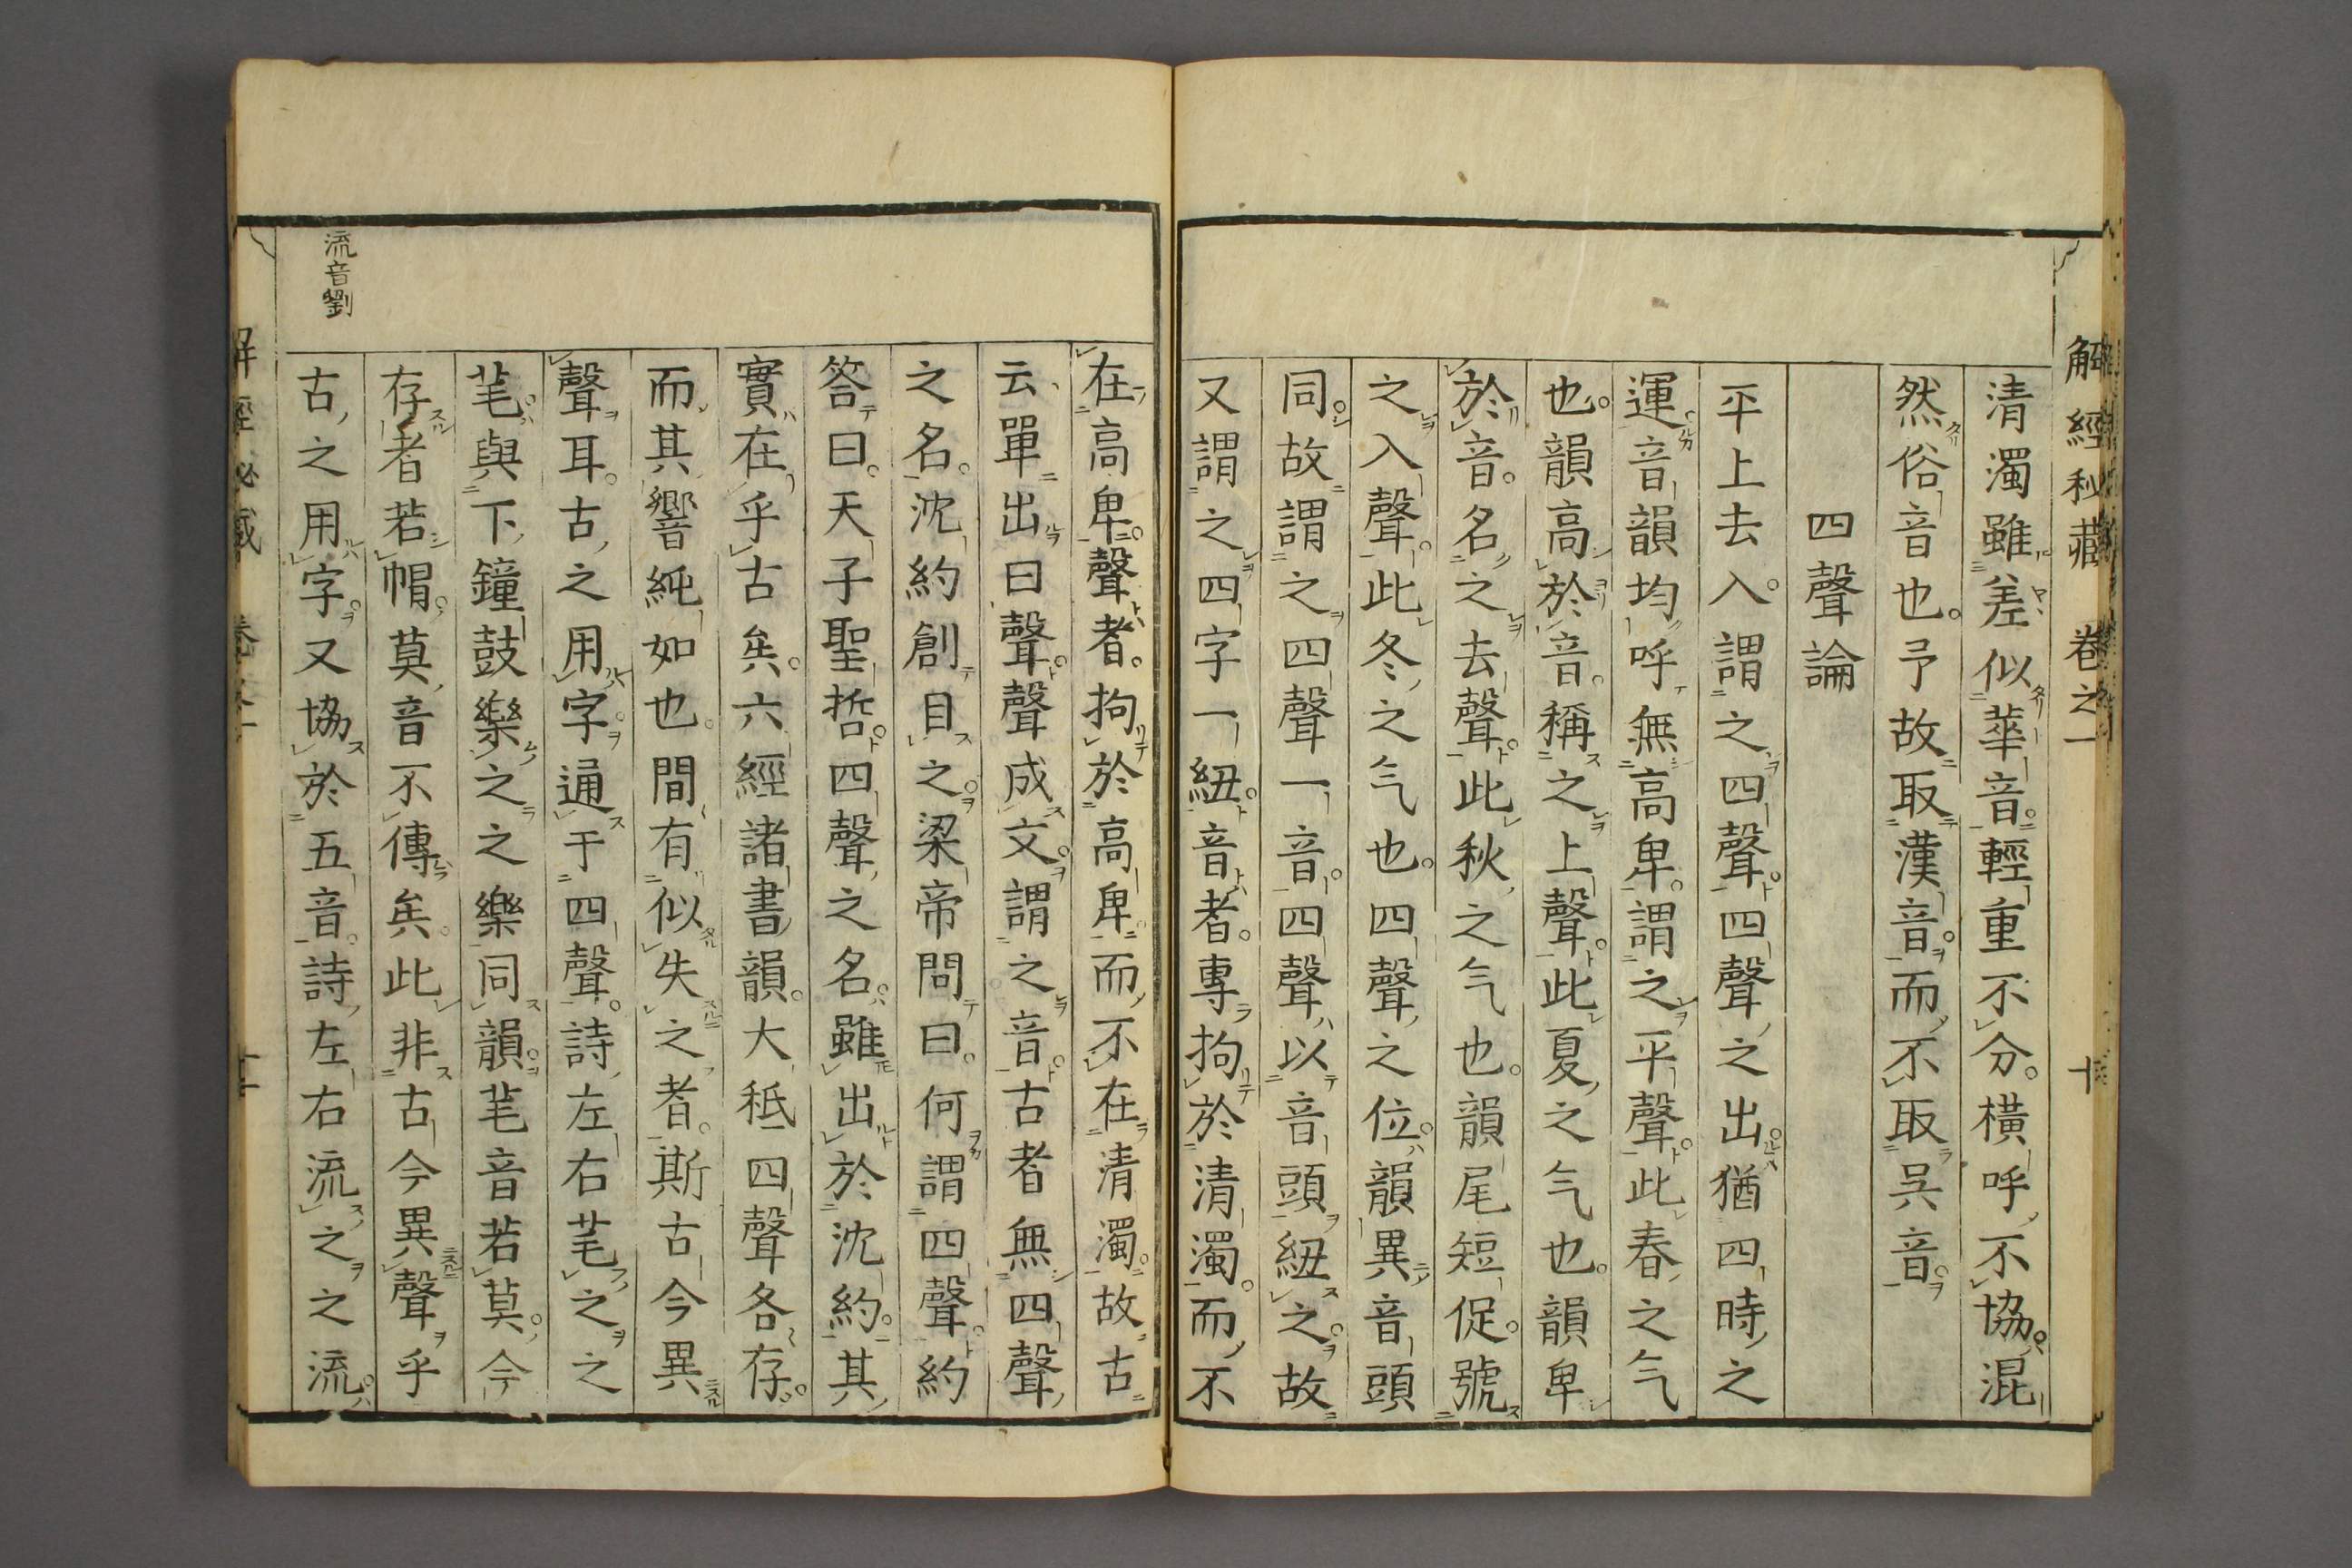 解經秘藏 卷之一 十
清濁雖差似華音輕重不分橫呼不協混
然俗音也予故取漢音而不取吳音
四聲論
平上去入謂之四聲四聲之出猶四時之
運音韻均呼無高卑謂之平聲此春之气
也韻高於音稱之上聲此夏之气也韻卑
於音名之去聲此秋之气也韻尾短促號
之入聲此冬之气也四聲之位韻異音頭
同故謂之四聲一音四聲以音頭紐之故
又謂之四字一紐音者專拘於清濁而不
在高卑聲者拘於高卑而不在清濁故古
云單出曰聲聲成文謂之音古者無四聲
之名沈約創目之梁帝問曰何謂四聲約
答曰天子聖哲四聲之名雖出於沈約其
實在乎古矣六經諸書韻大秪四聲各存
而其響純如也間有似失之者斯古今異
聲耳古之用字通于四聲詩左右芼之之
芼與下鐘鼓樂之之樂同韻芼音若莫今
存者若帽莫音不傳矣此非古今異聲乎
古之用字又協於五音詩左右流之之流
流音劉